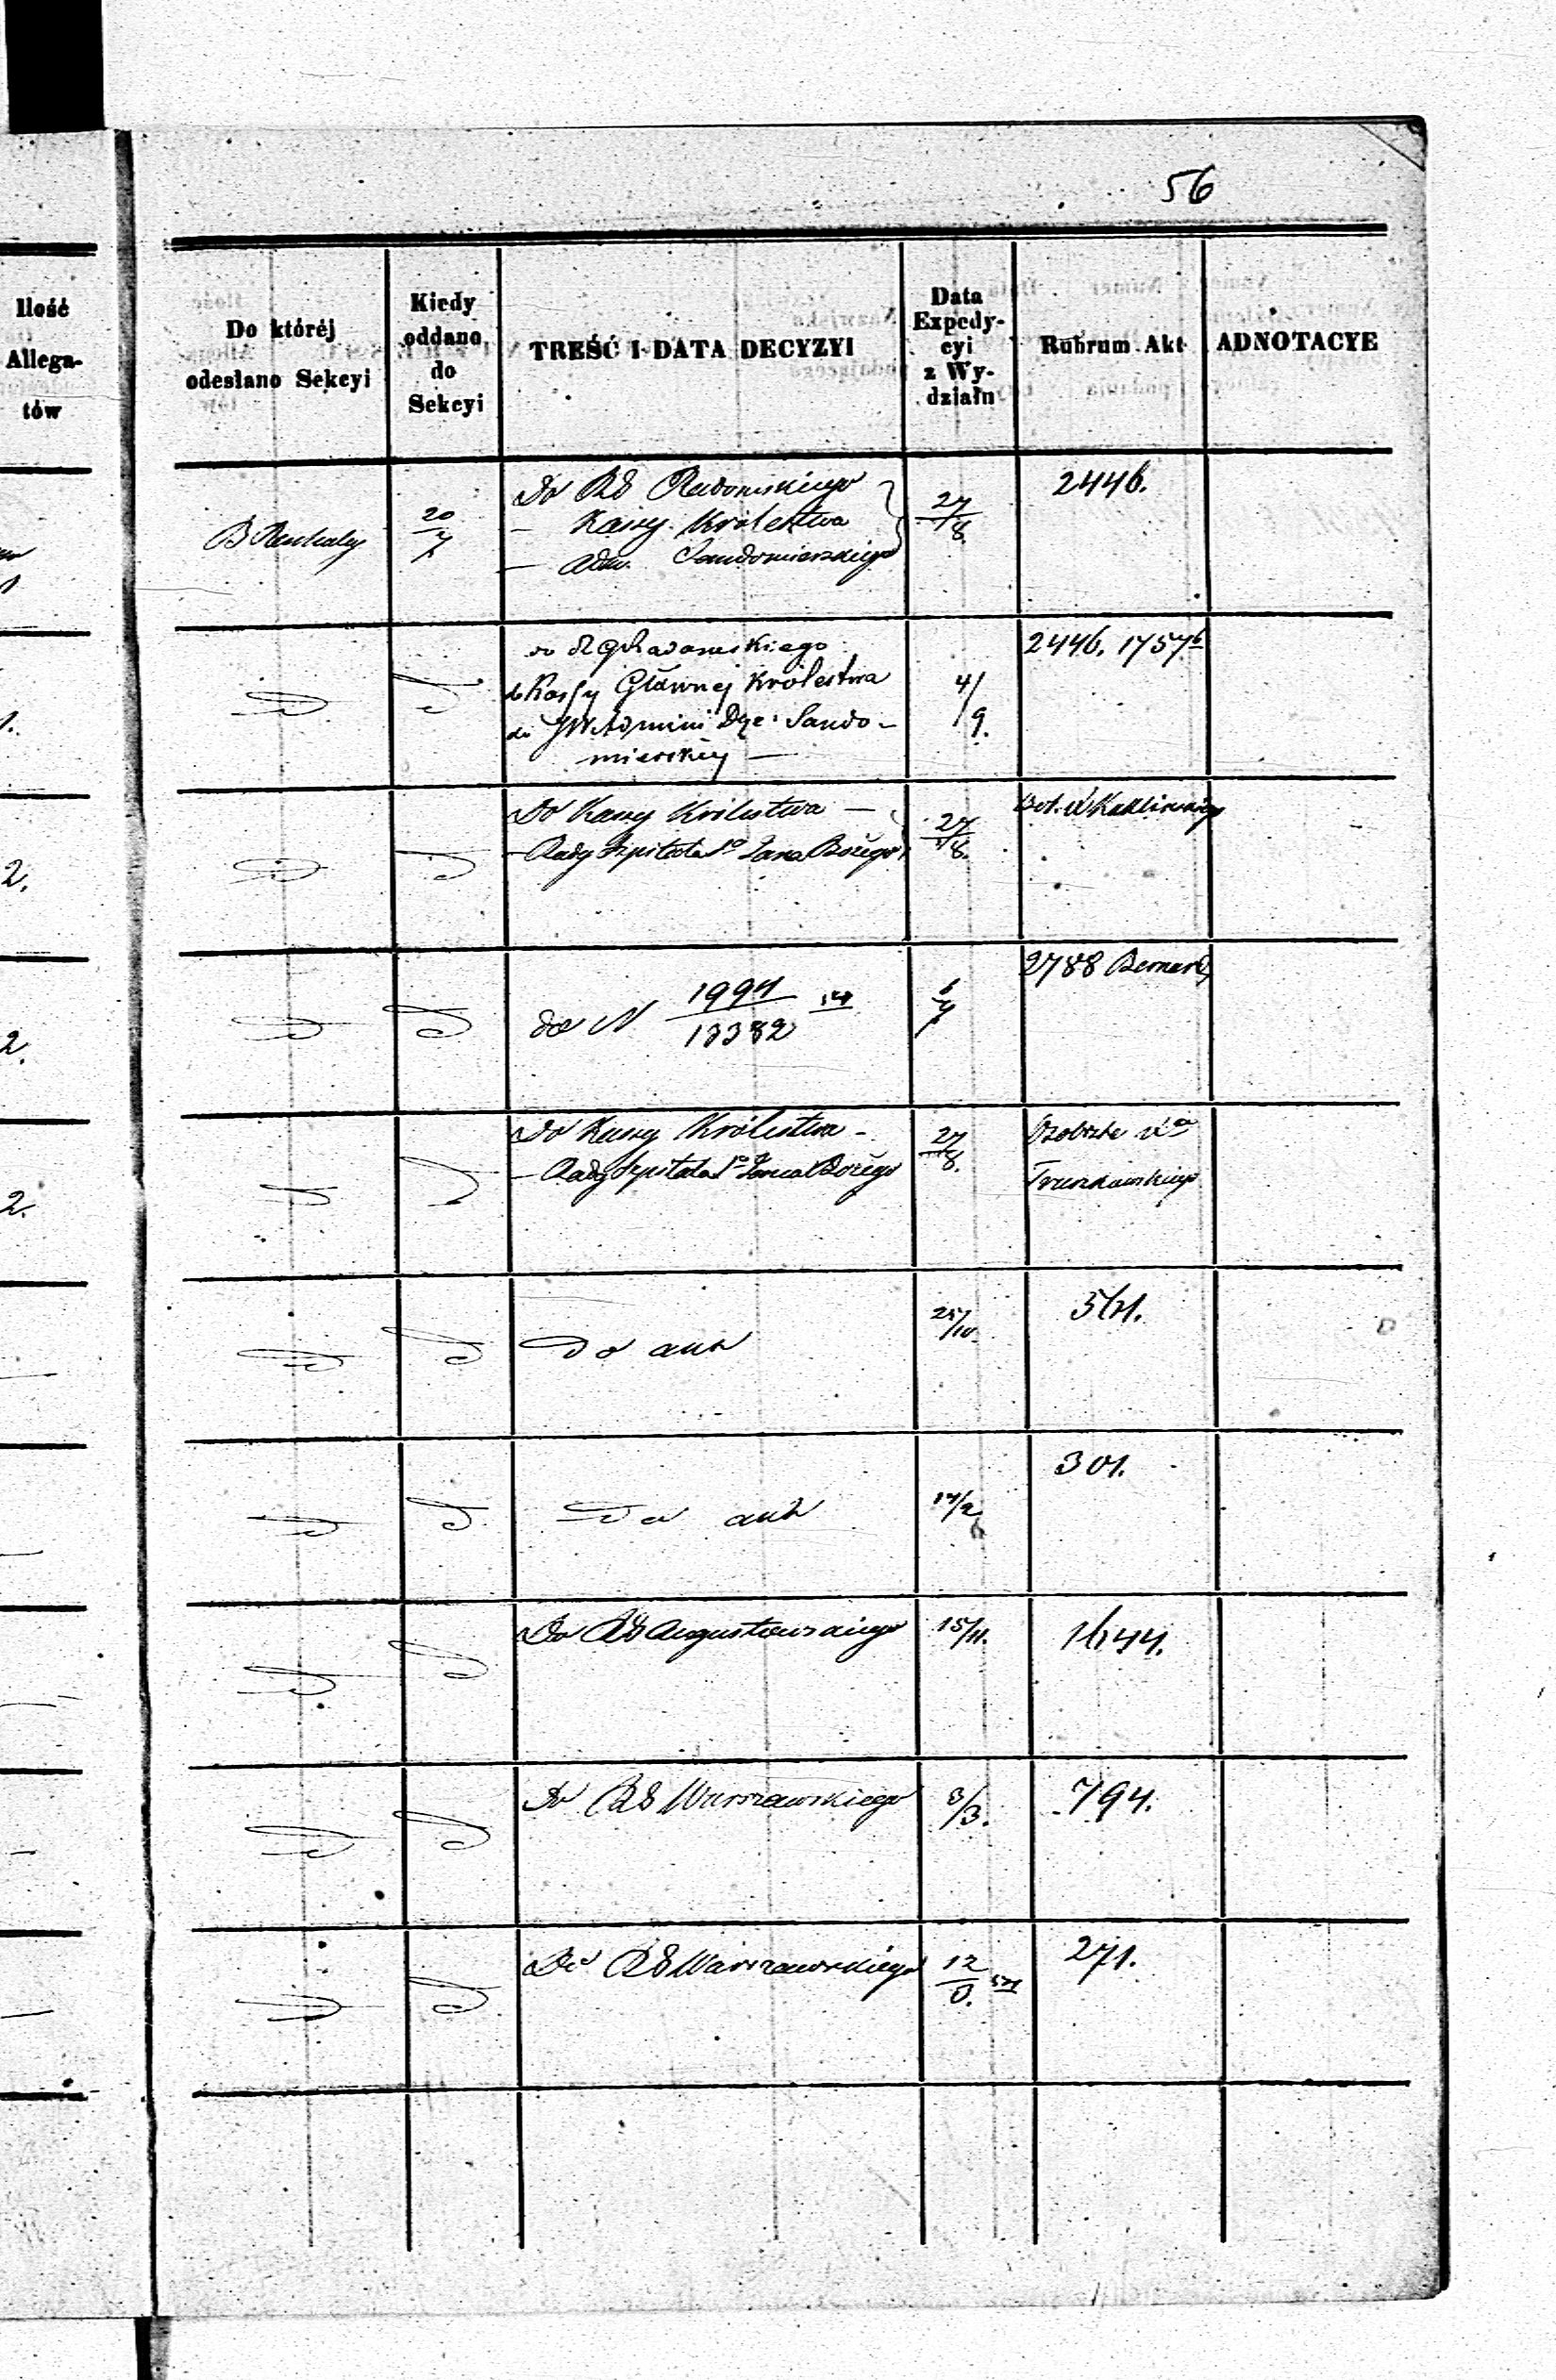 56
Ilość
Allega-
tów
Do któréj
odesłano Sekcyi
Kiedy
oddano
do
Sekcyi
TREŚĆ I DATA DECYZYI
Data
Expedy-
cyi
z Wy-
działu
Rubrum Akt
ADNOTACYE
20
7
Do RG Radomskiego
— Kassy Królestwa
— Adm. Sandomierskiego
27
8
2446.
do RG Radomskiego
do Kassy Głównej Królestwa
do JW Admini Dyec: Sando-
mierskiej —
4/9.
2446. 1757
Do Kassy Królestwa —
— Rady Szpitala Sº Jana Bożego
27
8.
2.
do N 1994
13382
6
9
2788 Bernard
2.
Do Kassy Królestwa -
— Rady Szpitala Sº Jana Bożego
27
8.
Truszkowskiego
2.
Do akt
25/10.
Do akt
301.
Do RG Augustowskiego
15/11.
Do RG Warszawskiego
3/3.
794.
Do RG Warszawskiego
12
271.